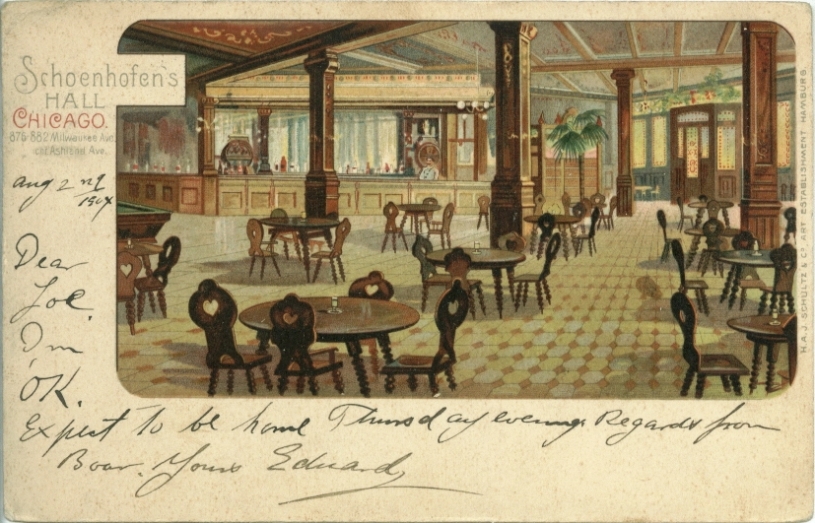 Schoenhofen's
HALL
CHICAGO.
876-882 Milwaukee Ave.
cor. Ashland Ave.
Aug 2nd
1904
Dear
Joe.
I'm
OK.
Expect to be home Thursday evening Regards from
Yours Eduard
H. A. J. SCHULTZ & Co. ART ESTABLISHMENT HAMBURG